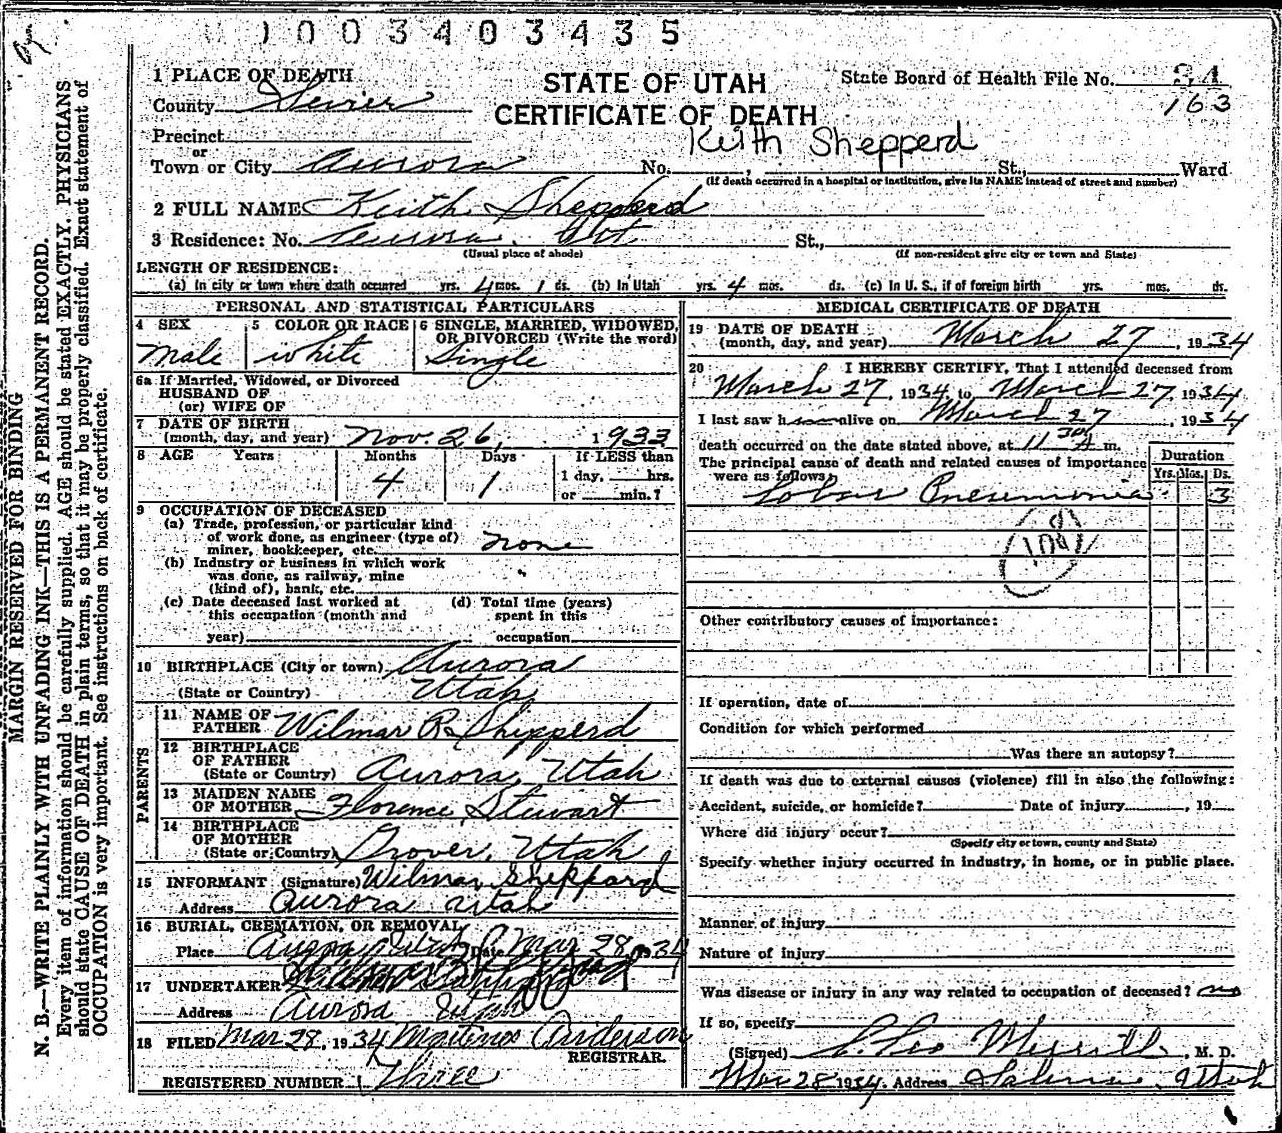 1003403435
MARGIN RESERVED FOR BINDING
N. B.—WRITE PLAINLY WITH UNFADING INK—THIS IS A PERMANENT RECORD.
Every item of information should be carefully supplied. AGE should be stated EXACTLY. PHYSICIANS
should state CAUSE OF DEATH in plain terms, so that it may be properly classified. Exact statement of
OCCUPATION is very important. See instructions on back of certificate.
STATE OF UTAH
CERTIFICATE OF DEATH
State Board of Health File No. 34
163
1 PLACE OF DEATH
County Sevier
Precinct
or
Town or City Aurora No. , St., Ward
Keith Shepperd
(If death occurred in a hospital or institution, give its NAME instead of street and number)
2 FULL NAME Keith Shepperd
3 Residence: No. Aurora, Ut St.,
(Usual place of abode) (If non-resident give city or town and State)
LENGTH OF RESIDENCE:
(a) In city or town where death occurred yrs. 4 mos. 1 ds. (b) In Utah yrs. 4 mos. ds. (c) In U. S., if of foreign birth yrs. mos. ds.
PERSONAL AND STATISTICAL PARTICULARS
4 SEX 5 COLOR OR RACE 6 SINGLE, MARRIED, WIDOWED,
OR DIVORCED (Write the word)
Male white Single
6a If Married, Widowed, or Divorced
HUSBAND OF
(or) WIFE OF
7 DATE OF BIRTH
(month, day, and year) Nov. 26, 1933
8 AGE Years Months Days If LESS than
4 1 1 day, hrs.
or min.?
9 OCCUPATION OF DECEASED
(a) Trade, profession, or particular kind
of work done, as engineer (type of)
miner, bookkeeper, etc. none
(b) Industry or business in which work
was done, as railway, mine
(kind of), bank, etc.
(c) Date deceased last worked at (d) Total time (years)
this occupation (month and spent in this
year) occupation
10 BIRTHPLACE (City or town) Aurora
(State or Country) Utah
PARENTS
11 NAME OF
FATHER Wilmar R Shepperd
12 BIRTHPLACE
OF FATHER
(State or Country) Aurora, Utah
13 MAIDEN NAME
OF MOTHER Florence Stewart
14 BIRTHPLACE
OF MOTHER
(State or Country) Grover, Utah
15 INFORMANT (Signature) Wilmar Sheppard
Address Aurora Utah
16 BURIAL, CREMATION, OR REMOVAL
Place Aurora Utah Date Mar 28, 1934
17 UNDERTAKER
Address Aurora Utah
18 FILED Mar 28, 1934 Anderson
REGISTRAR.
REGISTERED NUMBER Three
MEDICAL CERTIFICATE OF DEATH
19 DATE OF DEATH
(month, day, and year) March 27, 1934
20 I HEREBY CERTIFY, That I attended deceased from
March 27, 1934, to March 27, 1934
I last saw h alive on March 27, 1934
death occurred on the date stated above, at 11 30 A m.
The principal cause of death and related causes of importance
were as follows: Duration
Yrs. Mos. Ds.
Lobar Pneumonia 3
108
Other contributory causes of importance:
If operation, date of
Condition for which performed
Was there an autopsy?
If death was due to external causes (violence) fill in also the following:
Accident, suicide, or homicide? Date of injury , 19
Where did injury occur?
(Specify city or town, county and State)
Specify whether injury occurred in industry, in home, or in public place.
Manner of injury
Nature of injury
Was disease or injury in any way related to occupation of deceased? no
If so, specify
(Signed) Merrill, M. D.
Mar 28 1934. Address Salina, Utah